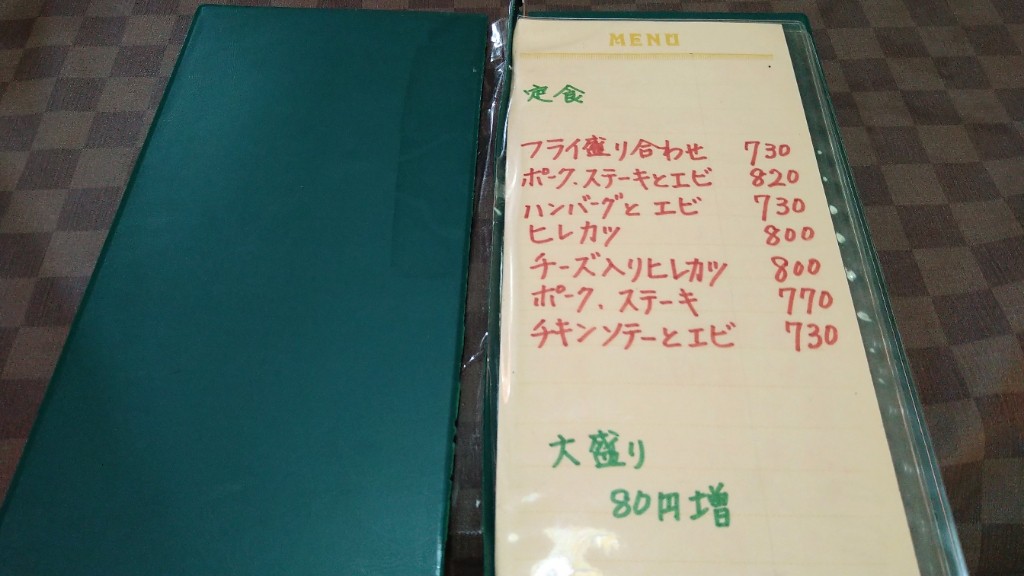 MENU
定食
フライ盛り合わせ 730
ポーク、ステーキとエビ 820
ハンバーグとエビ 730
ヒレカツ 800
チーズ入りヒレカツ 800
ポーク、ステーキ 770
チキンソテーとエビ 730
大盛り
80円増